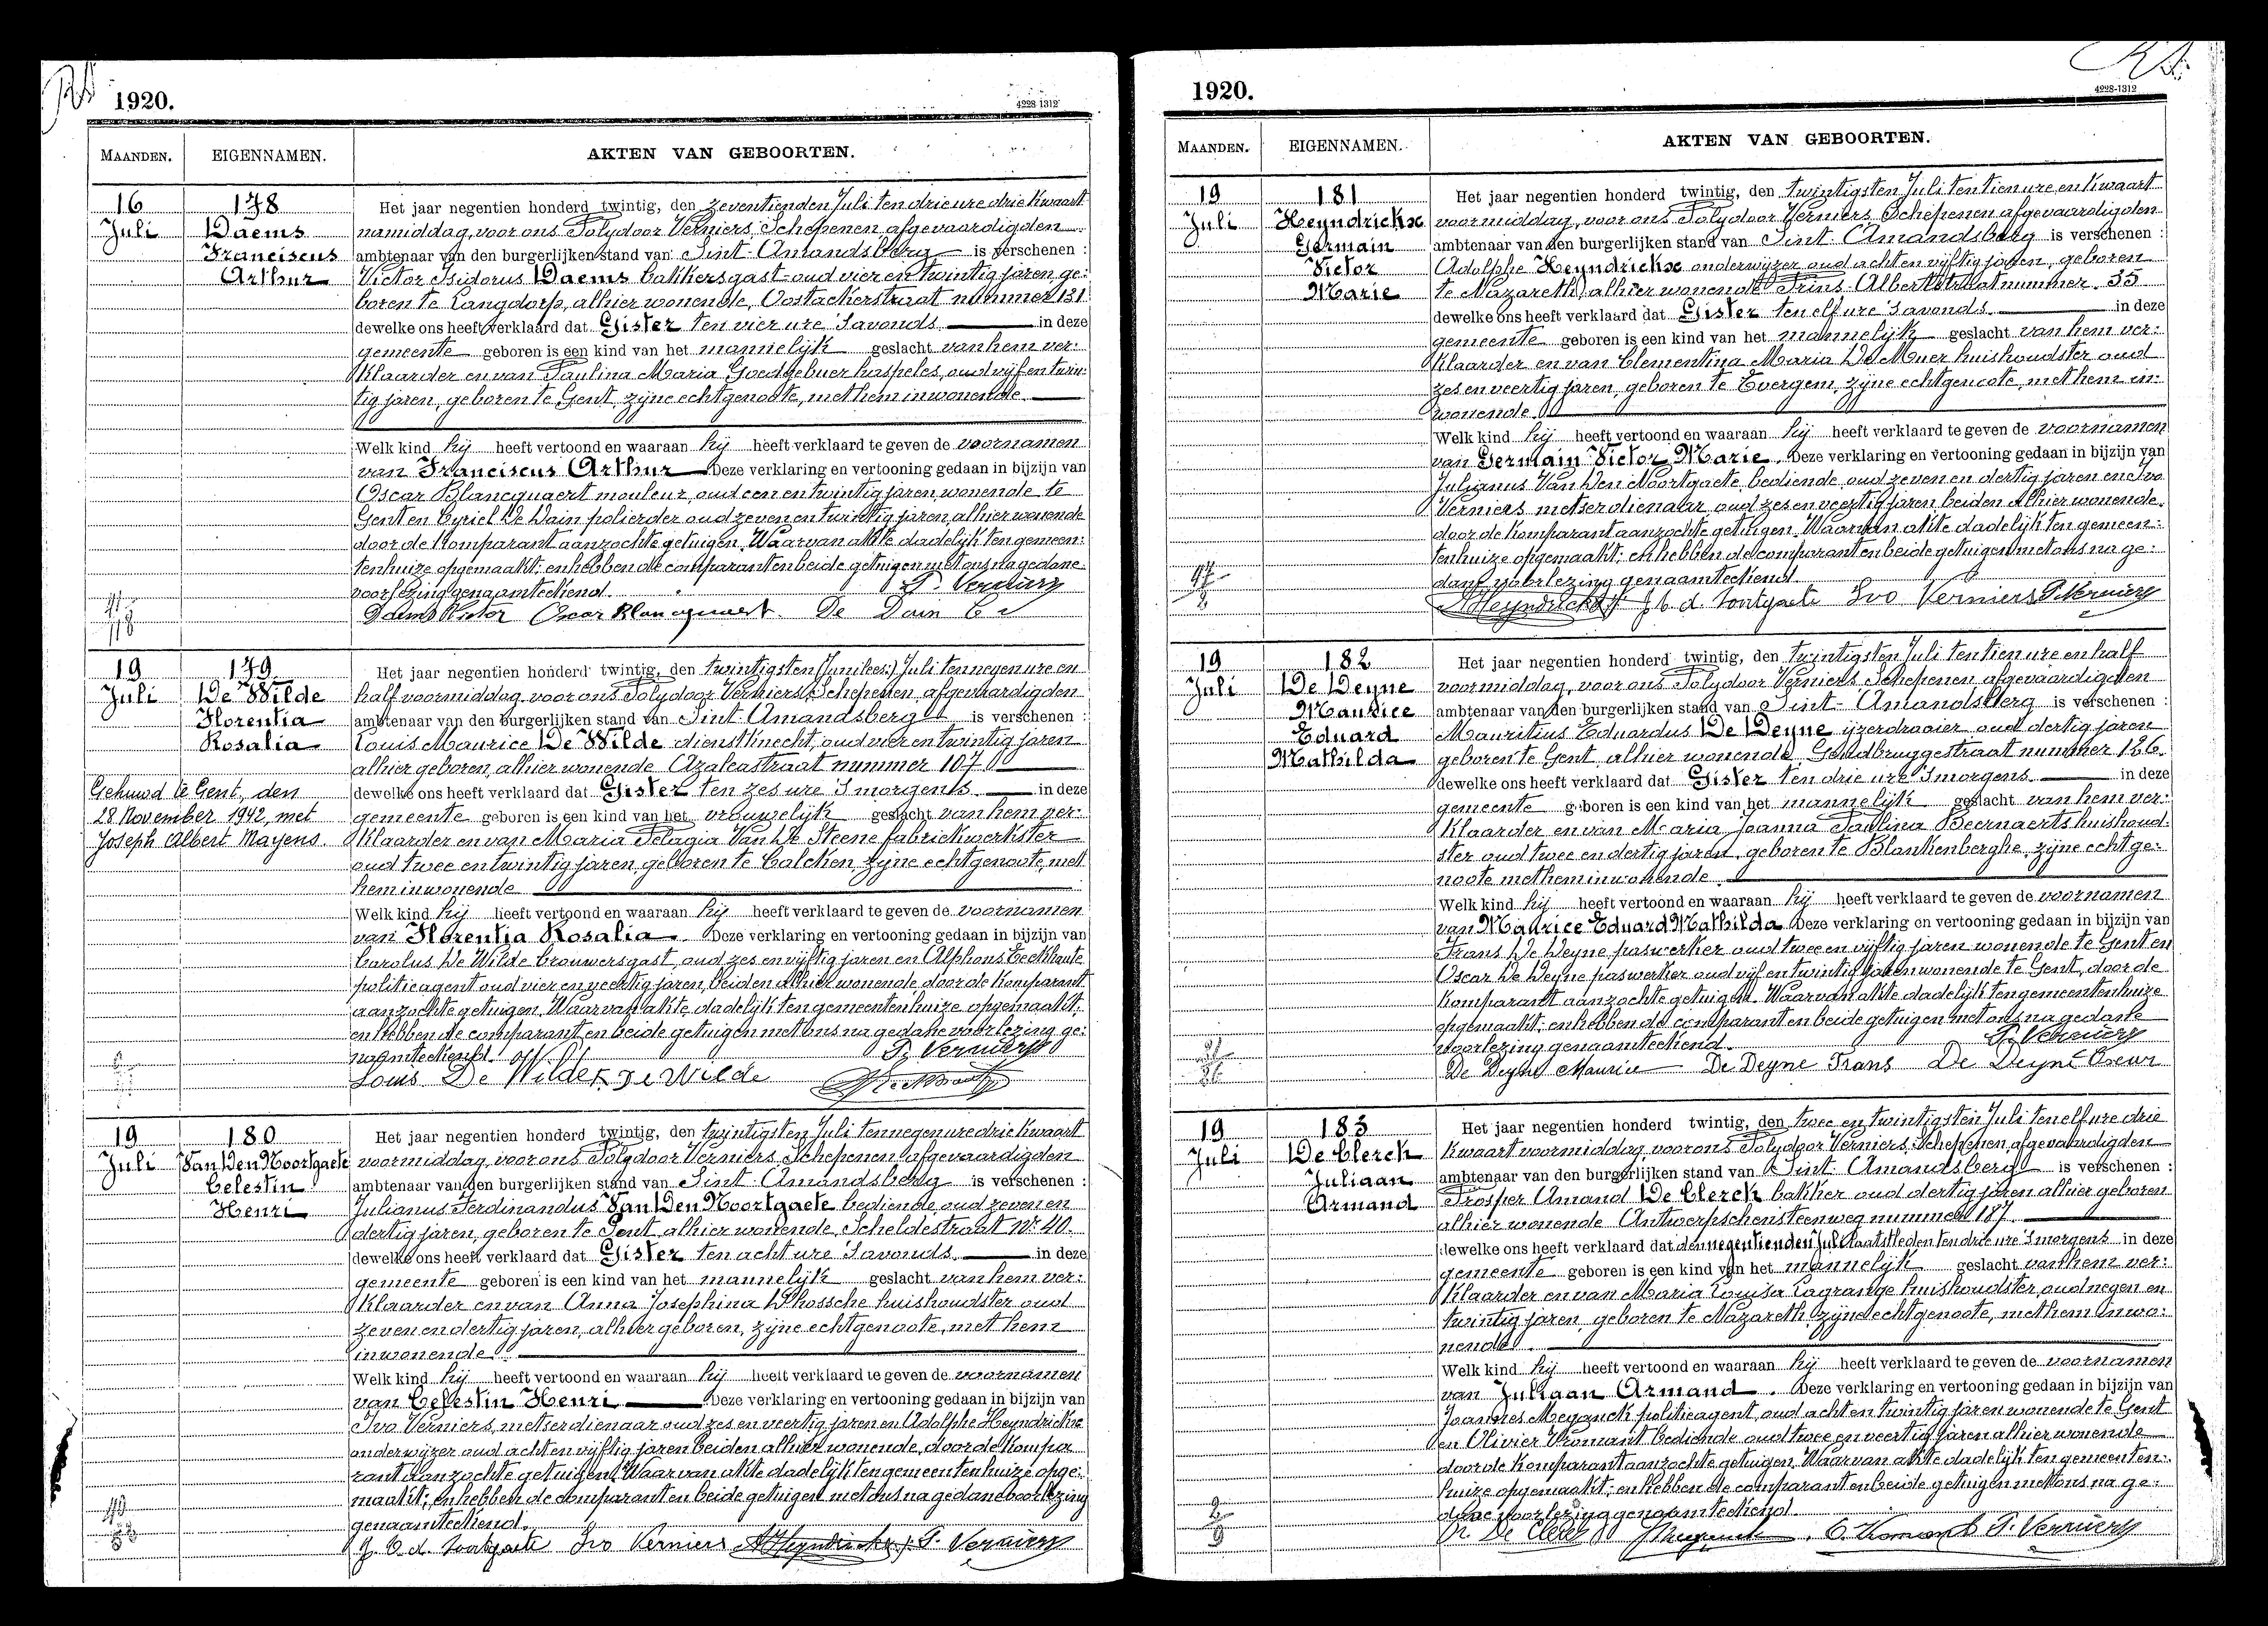 1920.
4228-1312
MAANDEN. EIGENNAMEN. AKTEN VAN GEBOORTEN.
16 Juli
178
Daems
Franciscus
Arthur
Het jaar negentien honderd twintig, den zeventienden Juli ten drie ure drie kwaart
namiddag, voor ons Polydoor Verniers, Schepenen, afgevaardigden
ambtenaar van den burgerlijken stand van Sint-Amandsberg is verschenen :
Victor Isidorus Daems bakkersgast oud vier en twintig jaren, ge:
boren te Langdorp, alhier wonende, Oostackerstraat nummer 131
dewelke ons heeft verklaard dat Gister ten vier ure 's avonds in deze
gemeente geboren is een kind van het mannelijk geslacht van hem ver:
klaarder en van Paulina Maria Goedgebuer haspeles, oud vijf en twin:
tig jaren, geboren te Gent, zijne echtgenoote, met hem inwonende.
Welk kind hij heeft vertoond en waaraan hij heeft verklaard te geven de voornamen
van Franciscus Arthur Deze verklaring en vertooning gedaan in bijzijn van
Oscar Blancquaert mouleur, oud een en twintig jaren, wonende te
Gent en Cyriel De Dain polierder oud zeven en twintig jaren, alhier wonende
door de komparant aanzochte getuigen. Waarvan akte dadelijk ten gemeen:
tenhuize opgemaakt; en hebben de comparant en beide getuigen met ons na gedane
voorlezing genaamteekend. P. Verniers
Daems Victor Oscar Blancquaert. De Dain C
19 Juli
179
De Wilde
Florentia
Rosalia
Gehuwd te Gent, den
28 November 1942, met
Joseph Albert Mayens.
Het jaar negentien honderd twintig, den twintigsten (Juni lees:) Juli ten negen ure en
half voormiddag voor ons Polydoor Verniers Schepenen, afgevaardigden
ambtenaar van den burgerlijken stand van Sint-Amandsberg is verschenen :
Louis Maurice De Wilde dienstknecht, oud vier en twintig jaren
alhier geboren, alhier wonende Azaleastraat nummer 107
dewelke ons heeft verklaard dat Gister ten zes ure 's morgens in deze
gemeente geboren is een kind van het vrouwelijk geslacht van hem ver:
klaarder en van Maria Pelagia Van De Steene fabriekwerkster
oud twee en twintig jaren, geboren te Calcken, zijne echtgenoote, met
hem inwonende
Welk kind hij heeft vertoond en waaraan hij heeft verklaard te geven de voornamen
van Florentia Rosalia. Deze verklaring en vertooning gedaan in bijzijn van
Carolus De Wilde brouwersgast, oud zes en vijftig jaren en Alphons Eeckhaute
politieagent oud vier en veertig jaren, beiden alhier wonende door de komparant
aanzochte getuigen. Waarvan akte dadelijk ten gemeentenhuize opgemaakt;
en hebben de comparant en beide getuigen met ons na gedane voorlezing ge:
naamteekend. P. Verniers
Louis De Wilde K. De Wilde
19 Juli
180
Van Den Noortgaete
Celestin
Henri
Het jaar negentien honderd twintig, den twintigsten Juli ten negen ure drie kwaart
voormiddag, voor ons Polydoor Verniers, Schepenen, afgevaardigden
ambtenaar van den burgerlijken stand van Sint-Amandsberg is verschenen :
Julianus Ferdinandus Van Den Noortgaete bediende, oud zeven en
dertig jaren, geboren te Gent, alhier wonende, Scheldestraat Nr. 40.
dewelke ons heeft verklaard dat Gister ten acht ure 's avonds. in deze
gemeente geboren is een kind van het mannelijk geslacht van hem ver:
klaarder en van Anna Josephina D'hossche huishoudster oud
zeven en dertig jaren, alhier geboren, zijne echtgenoote, met hem
inwonende
Welk kind hij heeft vertoond en waaraan hij heeft verklaard te geven de voornamen
van Celestin Henri Deze verklaring en vertooning gedaan in bijzijn van
Ivo Verniers, metserdienaar oud zes en veertig jaren en Adolphe Heyndrickx
onderwijzer oud acht en vijftig jaren beiden alhier wonende, door de kompa
rant aanzochte getuigen. Waarvan akte dadelijk ten gemeentenhuize opge:
maakt; en hebben de comparant en beide getuigen met ons na gedane voorlezing
genaamteekend.
J. V. d. Noortgaete Ivo Verniers A Heyndrickx P. Verniers
1920.
4228-1312
MAANDEN. EIGENNAMEN. AKTEN VAN GEBOORTEN.
19 Juli
181
Heyndrickx
Germain
Victor
Marie
Het jaar negentien honderd twintig, den twintigsten Juli ten tien ure en kwaart
voormiddag, voor ons Polydoor Verniers Schepenen afgevaardigden
ambtenaar van den burgerlijken stand van Sint-Amandsberg is verschenen :
Adolphe Heyndrickx onderwijzer oud acht en vijftig jaren, geboren
te Nazareth, alhier wonende Prins Albertstraat nummer 35
dewelke ons heeft verklaard dat Gister ten elf ure 's avonds. in deze
gemeente geboren is een kind van het mannelijk geslacht van hem ver:
klaarder en van Clementina Maria De Muer huishoudster oud
zes en veertig jaren, geboren te Evergem, zijne echtgenoote, met hem in:
wonende.
Welk kind hij heeft vertoond en waaraan hij heeft verklaard te geven de voornamen
van Germain Victor Marie. Deze verklaring en vertooning gedaan in bijzijn van
Julianus Van Den Noortgaete, bediende, oud zeven en dertig jaren en Ivo
Verniers metserdienaar oud zes en veertig jaren beiden alhier wonende.
door de komparant aanzochte getuigen. Waarvan akte dadelijk ten gemeen:
tenhuize opgemaakt; en hebben de comparant en beide getuigen met ons na ge:
dane voorlezing genaamteekend.
A Heyndrickx J V. d. Noortgaete Ivo Verniers P. Verniers
19 Juli
182
De Deyne
Maurice
Eduard
Mathilda
Het jaar negentien honderd twintig, den twintigsten Juli ten tien ure en half
voormiddag, voor ons Polydoor Verniers Schepenen afgevaardigden
ambtenaar van den burgerlijken stand van Sint-Amandsberg is verschenen :
Mauritius Eduardus De Deyne ijzerdraaier oud dertig jaren
geboren te Gent alhier wonende, Gendbruggestraat nummer 126.
dewelke ons heeft verklaard dat Gister ten drie ure 's morgens. in deze
gemeente geboren is een kind van het mannelijk geslacht van hem ver:
klaarder en van Maria Joanna Paulina Beernaerts huishoud-
ster oud twee en dertig jaren, geboren te Blankenberghe, zijne echtge:
noote met hem inwonende.
Welk kind hij heeft vertoond en waaraan hij heeft verklaard te geven de voornamen
van Maurice Eduard Mathilda Deze verklaring en vertooning gedaan in bijzijn van
Frans De Deyne paswerker oud twee en vijftig jaren wonende te Gent en
Oscar De Deyne paswerker oud vijf en twintig jaren wonende te Gent, door de
komparant aanzochte getuigen. Waarvan akte dadelijk ten gemeentenhuize
opgemaakt; en hebben de comparant en beide getuigen met ons na gedane
voorlezing genaamteekend. P. Verniers
De Deyne Maurice De Deyne Frans De Deyne Oscar
19 Juli
183
De Clerck
Juliaan
Armand
Het jaar negentien honderd twintig, den twee en twintigsten Juli ten elf ure drie
kwaart voormiddag, voor ons Polydoor Verniers, Schepenen, afgevaardigden
ambtenaar van den burgerlijken stand van Sint-Amandsberg is verschenen :
Prosper Amand De Clerck bakker oud dertig jaren alhier geboren
alhier wonende Antwerpschensteenweg nummer 187.
dewelke ons heeft verklaard dat den negentienden Juli laatstleden ten drie ure 's morgens in deze
gemeente geboren is een kind van het mannelijk geslacht van hem ver:
klaarder en van Maria Louisa Lagrange huishoudster, oud negen en
twintig jaren, geboren te Nazareth, zijne echtgenoote, met hem inwo:
nende.
Welk kind hij heeft vertoond en waaraan hij heeft verklaard te geven de voornamen
van Juliaan Armand. Deze verklaring en vertooning gedaan in bijzijn van
Joannes Meganck politieagent, oud acht en twintig jaren wonende te Gent
en Olivier Vromant bediende oud twee en veertig jaren alhier wonende
door de komparant aanzochte getuigen. Waarvan akte dadelijk ten gemeenten:
huize opgemaakt; en hebben de comparant en beide getuigen met ons na ge:
dane voorlezing genaamteekend.
Pr. De Clerck J Meganck. O. Vromant P. Verniers